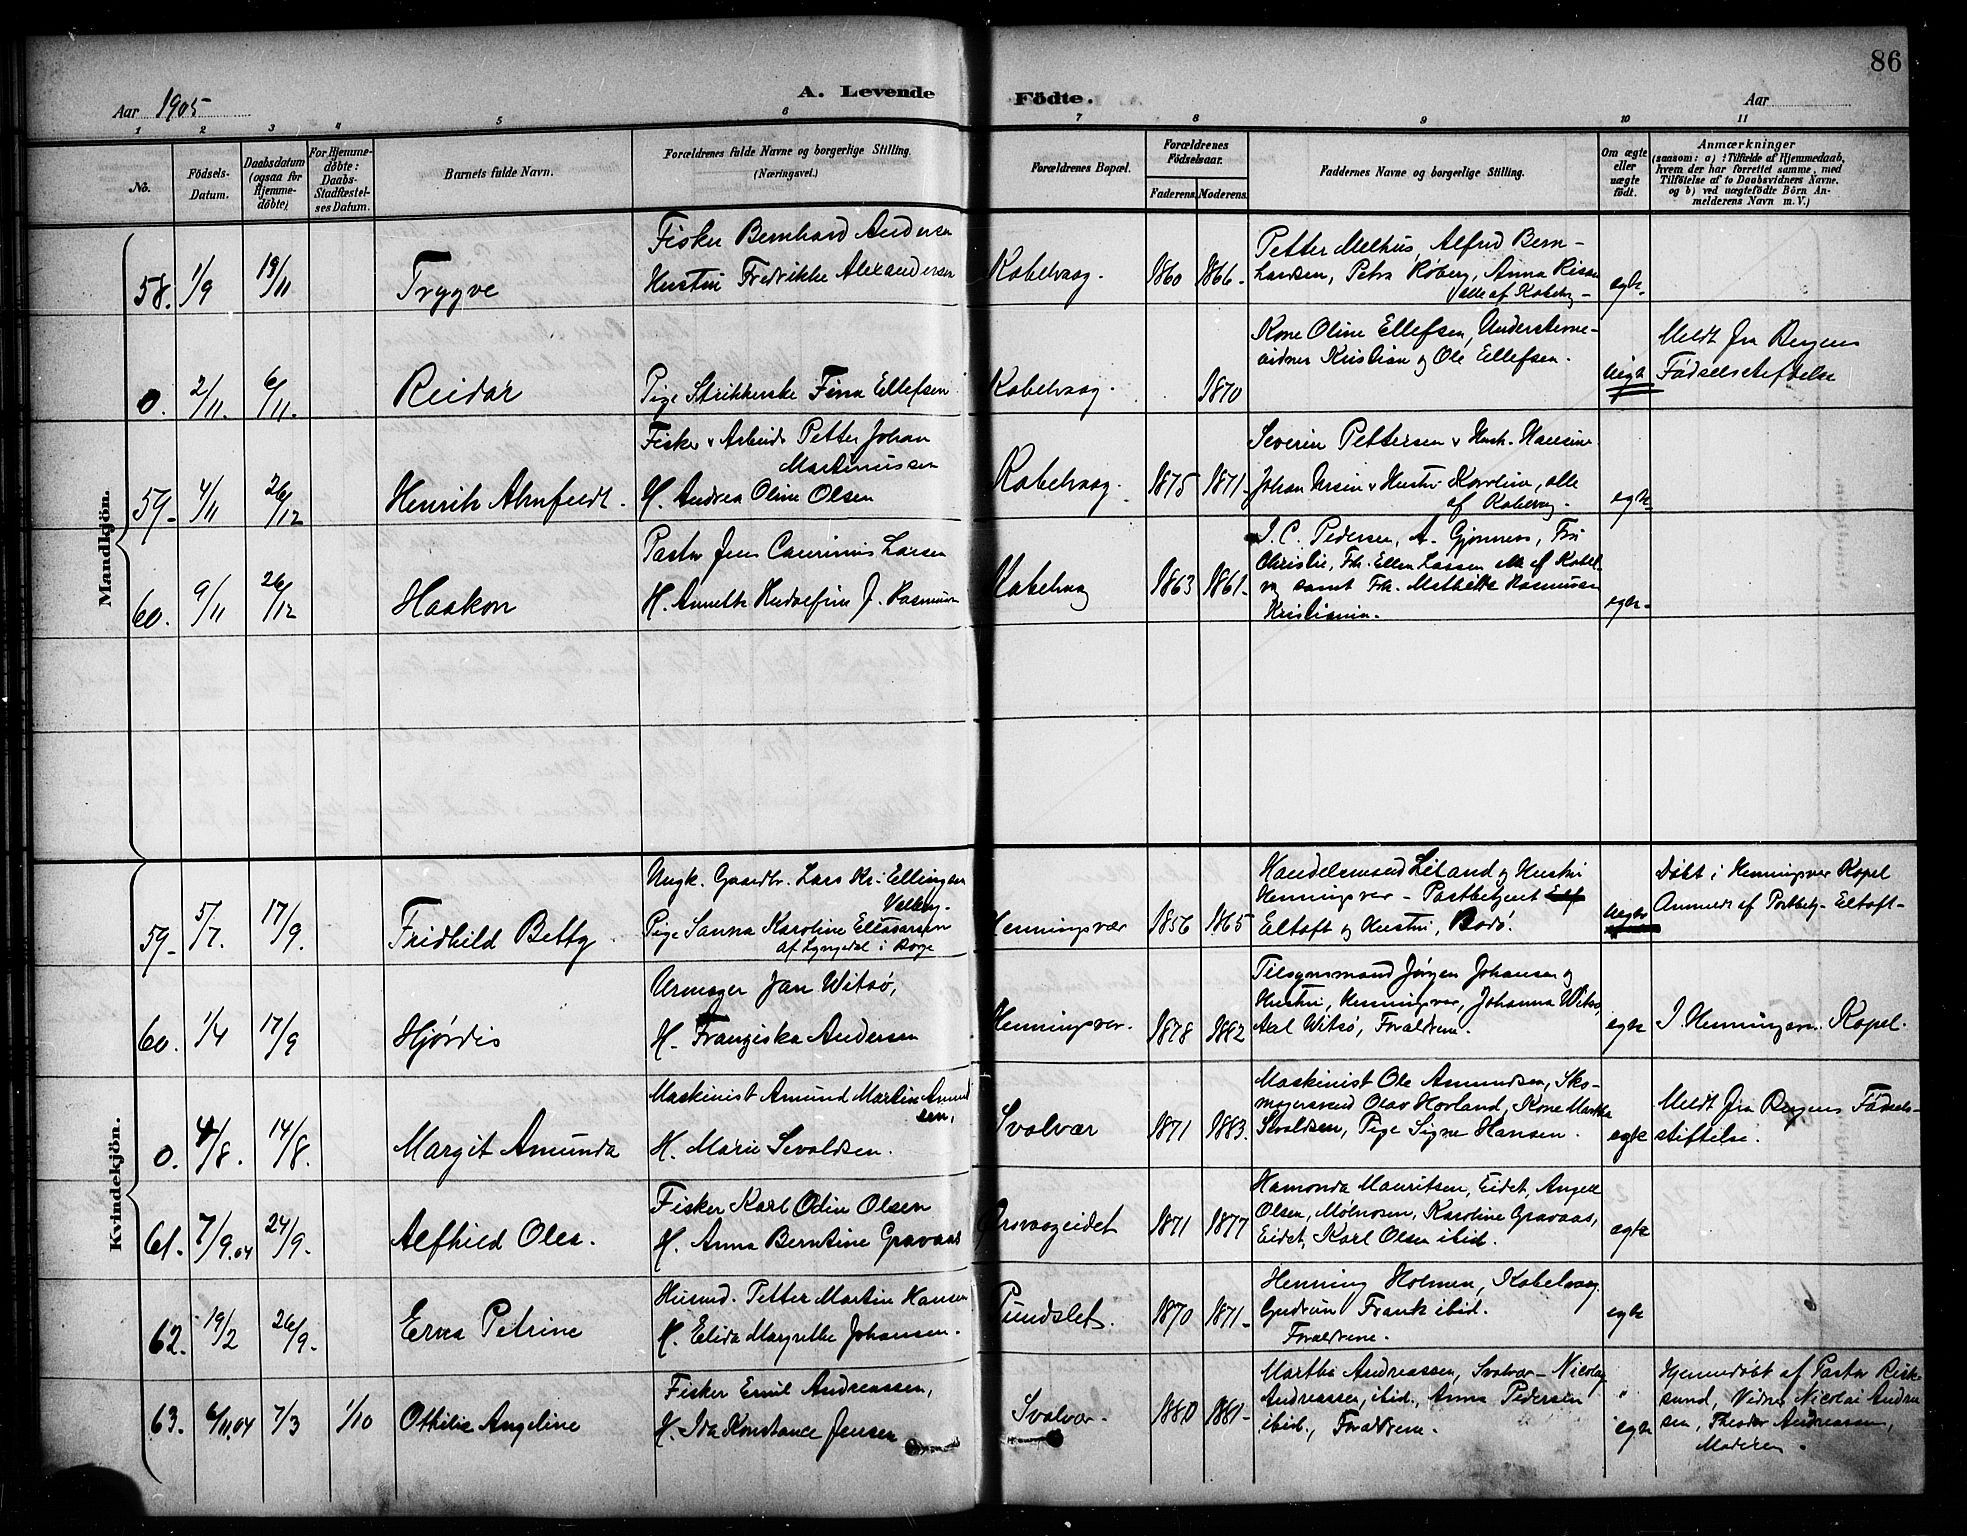 86
A. Levende Födte.
Aar 1905
Aar
1 2 3 4 5 6 7 8 9 10 11
No.
Födsels-
Datum.
Daabsdatum
(ogsaa for
Hjemme-
döbte).
For Hjemme-
döbte:
Daabs-
Stadfæstel-
ses Datum.
Barnets fulde Navn.
Forældrenes fulde Navne og borgerlige Stilling.
(Næringsvei.)
Forældrenes Bopæl.
Forældrenes
Födselsaar.
Faderens. Moderens.
Faddernes Navne og borgerlige Stilling.
Om ægte
eller
uægte
födt.
Anmærkninger
(saasom: a) i Tilfælde af Hjemmedaab,
hvem der har forrettet samme, med
Tilföielse af to Daabsvidners Navne,
og b) ved uægtefödte Börn An-
melderens Navn m. V.)
Mandkjön.
58. 1/9 19/11 Trygve
Fisker Bernhard Andersen
Hustru Fredrikke Alexandersen
Kabelvaag. 1860 1866.
Petter Melhus, Alfred Bern-
tsen, Petra Róberg, Anna
alle af Kabelvg -
egte.
0. 2/11. 6/11. Reidar
Pige Strikkerske Fina Ellefsen
Kabelvaag. 1870
Kone Oline Ellefsen,
Kristian og Ole Ellefsen.
uegte
Meldt fra Bergens
Fødselsstiftelse
59- 4/11 26/12 Henrik Ahnfeldt.
Fisker & Arbeid. Petter Johan
Martinussen
H. Andrea Oline Olsen
Kabelvaag. 1875 1871-
Severin Pettersen & Hust. Hansine
Johan Ursin & Hustr. Karoline, alle
af Kabelvag.
egte-
60. 9/11 26/12 Haakon
Pastor Jens Larsen
H. Annette J. Rasmussen
Kabelvaag 1863 1861-
J. C. Pedersen, A. Gjønnes, Fru
Christie, Frk. Ellen Lassen alle af Kabel-
vg samt Frk. Mathilde Rasmussen
Kristiania.
egte-
Kvindekjön.
59- 5/7. 17/9. Fridhild Betty
Ungk. Gaardbr. Lars Kr. Ellingsen
Valberg.
Pige Sanna Karoline Eliasarsen
af Lyngedal i Borge
Henningsvær 1856 1865
Handelsmand Leland og Hustru
Henningsvær - Postbetjent
Eltoft og Hustru, Bodó.
uegte
Døbt i Henningsver Kapel
Anmeldt af Postbetj. Eltoft-
60. 1/4 17/9 Hjørdis
Urmager Jan Witsø,
H. Franziska Andersen
Henningsver. 1878 1882
Tilsynsmand Jørgen Johansen og
Hustru, Henningsver, Johanna Witsø,
Axel Witsø, Forældrene.
egte
I Henningsvær Kapel.
0. 4/8. 14/8. Margit Amunda
Maskinist Amund Martin Amund
sen,
H. Marie Sivaldsen.
Svolvær 1871 1883.
Maskinist Ole Amundsen, Sko-
magersvend Olav Hovland, Kone Martha
Sivaldsen, Pige Signe Hansen.
egte
Meldt fra Bergens Fødsels-
stiftelse.
61. 7/9.04 24/9. Alfhild Olea.
Fisker Karl Odin Olsen
H. Anna Berntine Gravaas
Ørsvaageidet 1871 1877
Hamonda Mauritsen, Eidet, Angell
Olsen, Mølnosen, Karoline Gravaas,
Eidet, Karl Olsen ibid.
egte
62. 19/2 26/9. Erna Petrine
Husmd. Petter Martin Hansen
H. Elida Margrethe Johansen.
Pundslet. 1870 1871-
Henning Holmen, Kabelvaag
Gudrun Frank ibid.
Forældrene.
egte
63. 6/11.04 7/3 1/10 Othilie Angeline
Fisker Emil Andreassen,
H. Ida Konstance Jensen
Svolvær. 1880 1881-
Martha Andreassen, Svolvær - Nicolay
Andreassen, ibid., Anna Pedersen
ibid., Forældrene.
" egte
Hjemmedøbt af Pastor
sund, Vidner Nicolai Andrea
sen, Theodor Andreassen,
Moderen.